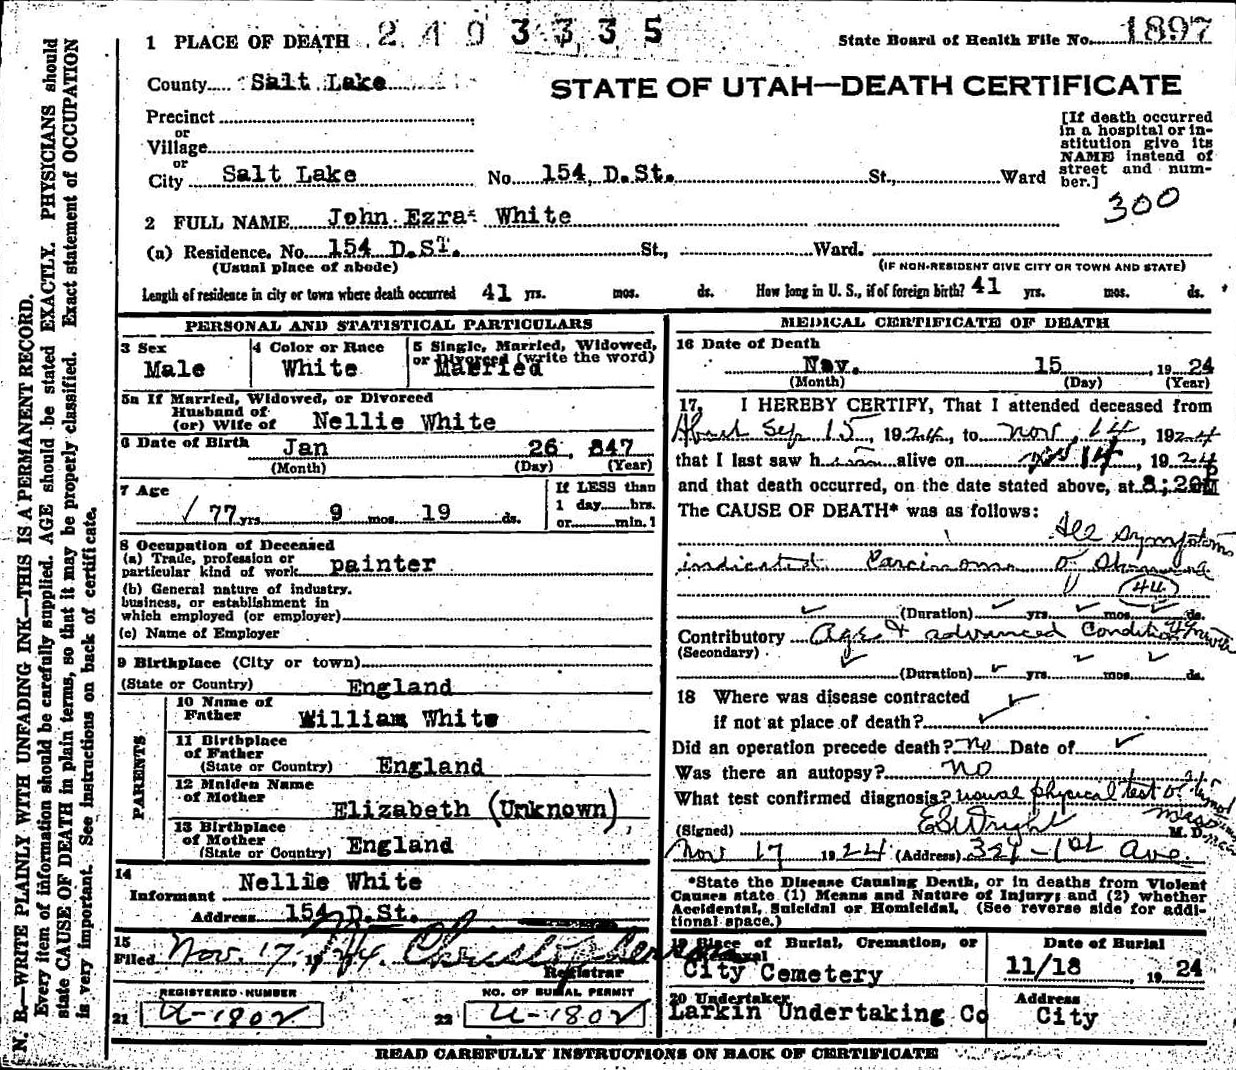 1 PLACE OF DEATH 2 4 9 3 3 3 5
State Board of Health File No. 1897
County Salt Lake
STATE OF UTAH—DEATH CERTIFICATE
Precinct
or
Village
or
City Salt Lake No. 154 D.St. St., Ward
[If death occurred in a hospital or in-
stitution give its
NAME instead of
street and num-
ber.]
300
2 FULL NAME John Ezra White
(a) Residence. No. 154 D.ST. St., Ward.
(Usual place of abode) (IF NON-RESIDENT GIVE CITY OR TOWN AND STATE)
Length of residence in city or town where death occurred 41 yrs. mos. ds. How long in U. S., if of foreign birth? 41 yrs. mos. ds.
PERSONAL AND STATISTICAL PARTICULARS
3 Sex
Male
4 Color or Race
White
5 Single, Married, Widowed,
or Divorced (write the word)
Married
5a If Married, Widowed, or Divorced
Husband of
(or) Wife of Nellie White
6 Date of Birth Jan 26, 847
(Month) (Day) (Year)
7 Age
77 yrs. 9 mos. 19 ds.
If LESS than
1 day hrs.
or min.
8 Occupation of Deceased
(a) Trade, profession or
particular kind of work painter
(b) General nature of industry,
business, or establishment in
which employed (or employer)
(c) Name of Employer
9 Birthplace (City or town)
(State or Country) England
PARENTS
10 Name of
Father William White
11 Birthplace
of Father
(State or Country) England
12 Maiden Name
of Mother
Elizabeth (Unknown)
13 Birthplace
of Mother
(State or Country) England
14
Informant Nellie White
Address 154 D.St.
15
Filed Nov. 17, 1924.
Registrar
REGISTERED NUMBER
21 U-1802
NO. OF BURIAL PERMIT
22 U-1802
MEDICAL CERTIFICATE OF DEATH
16 Date of Death
Nov. 15, 1924
(Month) (Day) (Year)
17, I HEREBY CERTIFY, That I attended deceased from
About Sep 15, 1924, to Nov, 14, 1924
that I last saw him alive on Nov 14, 1924
and that death occurred, on the date stated above, at 8;20P
The CAUSE OF DEATH* was as follows:
All symptoms
indicated Carcinoma of Stomach
44
(Duration) yrs. mos. ds.
Contributory Age & advanced Condition
(Secondary)
(Duration) yrs. mos. ds.
18 Where was disease contracted
if not at place of death?
Did an operation precede death? No Date of
Was there an autopsy? NO
What test confirmed diagnosis? usual physical test
(Signed) E S Wright M. D.
Nov 17 1924 (Address) 329-1st Ave.
*State the Disease Causing Death, or in deaths from Violent
Causes state (1) Means and Nature of Injury; and (2) whether
Accidental, Suicidal or Homicidal. (See reverse side for addi-
tional space.)
19 Place of Burial, Cremation, or
Removal
City Cemetery
Date of Burial
11/18 1924
20 Undertaker
Larkin Undertaking Co
Address
City
READ CAREFULLY INSTRUCTIONS ON BACK OF CERTIFICATE
N. B.—WRITE PLAINLY WITH UNFADING INK—THIS IS A PERMANENT RECORD.
Every item of information should be carefully supplied. AGE should be stated EXACTLY. PHYSICIANS should
state CAUSE OF DEATH in plain terms, so that it may be properly classified. Exact statement of OCCUPATION
is very important. See instructions on back of certificate.